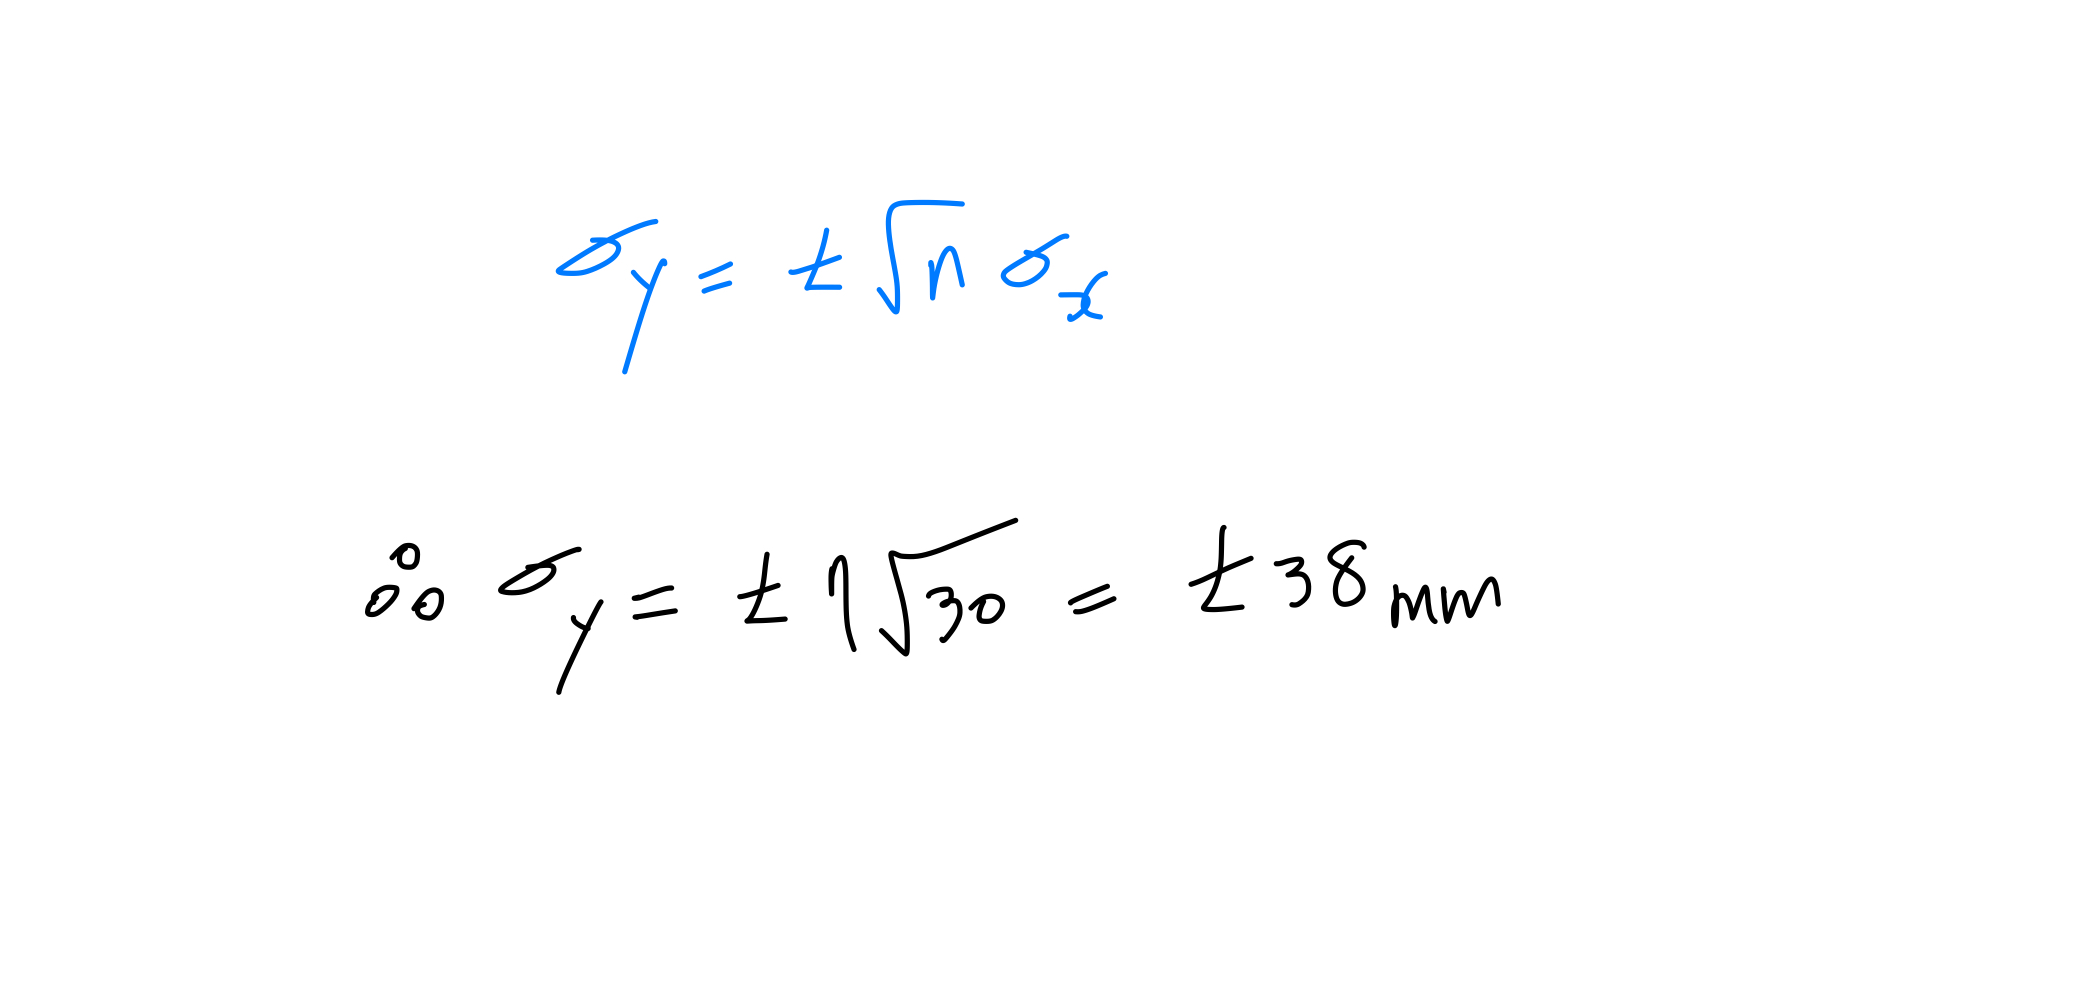 σy = ± √n σx
∴ σy = ± 7√30 = ± 38 mm